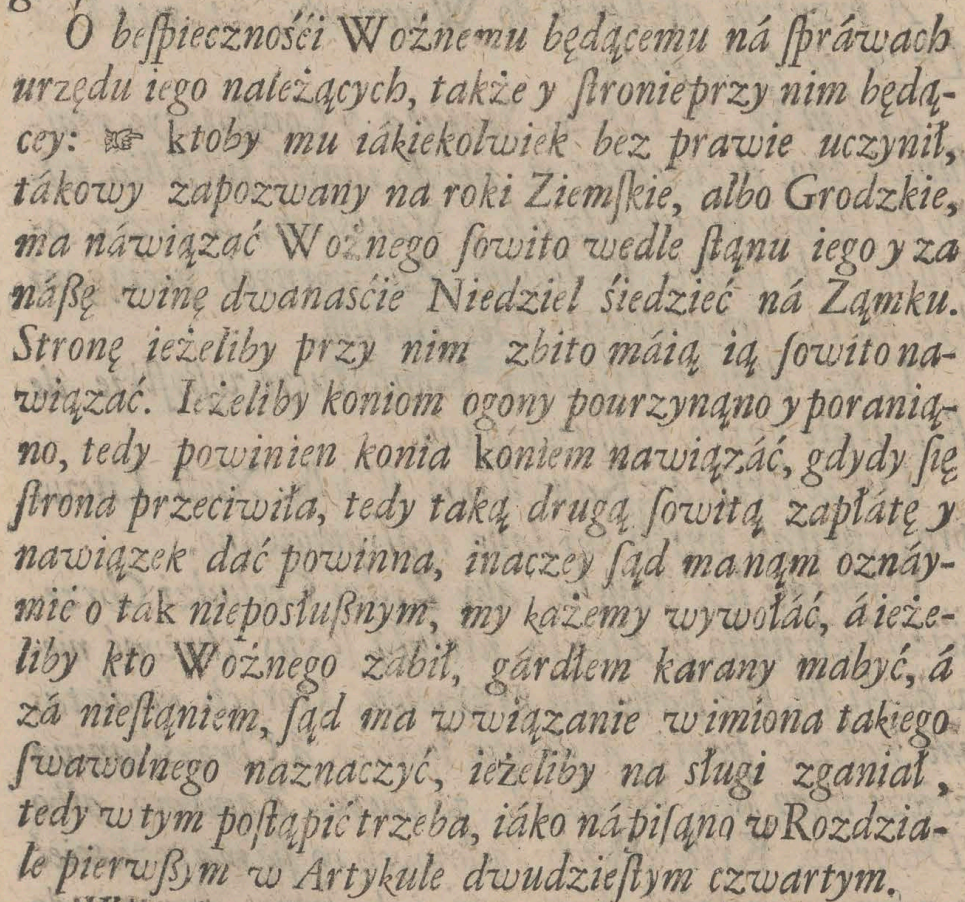 O beſpiecznośći Woźnemu będącemu ná ſpráwach
urzędu iego należących, także y ſtronie przy nim będą-
cey: ☞ ktoby mu iákiekolwiek bez prawie uczynił,
tákowy zapozwany na roki Ziemſkie, albo Grodzkie,
ma náwiązać Woźnego ſowito wedle ſtąnu iego y za
náßę winę dwanaśćie Niedziel śiedzieć ná Ząmku.
Stronę ieżeliby przy nim zbito máią ią ſowito na-
wiązać. Ieżeliby koniom ogony pourzynąno y poranią-
no, tedy powinien konia koniem nawiązáć, gdydy ſię
ſtrona przeciwiła, tedy taką drugą ſowitą zapłátę y
nawiązek dać powinna, inaczey ſąd ma nąm oznáy-
mić o tak nieposłußnym, my każemy wywołáć, á ieże-
liby kto Woźnego zábił, gárdłem karany ma być, á
zá nieſtąniem, ſąd ma w wiązanie w imiona takiego
ſwawolnego naznaczyć, ieżeliby na sługi zganiał,
tedy w tym poſtąpić trzeba, iáko nápiſąno w Rozdzia-
le pierwßym w Artykule dwudzieſtym czwartym.